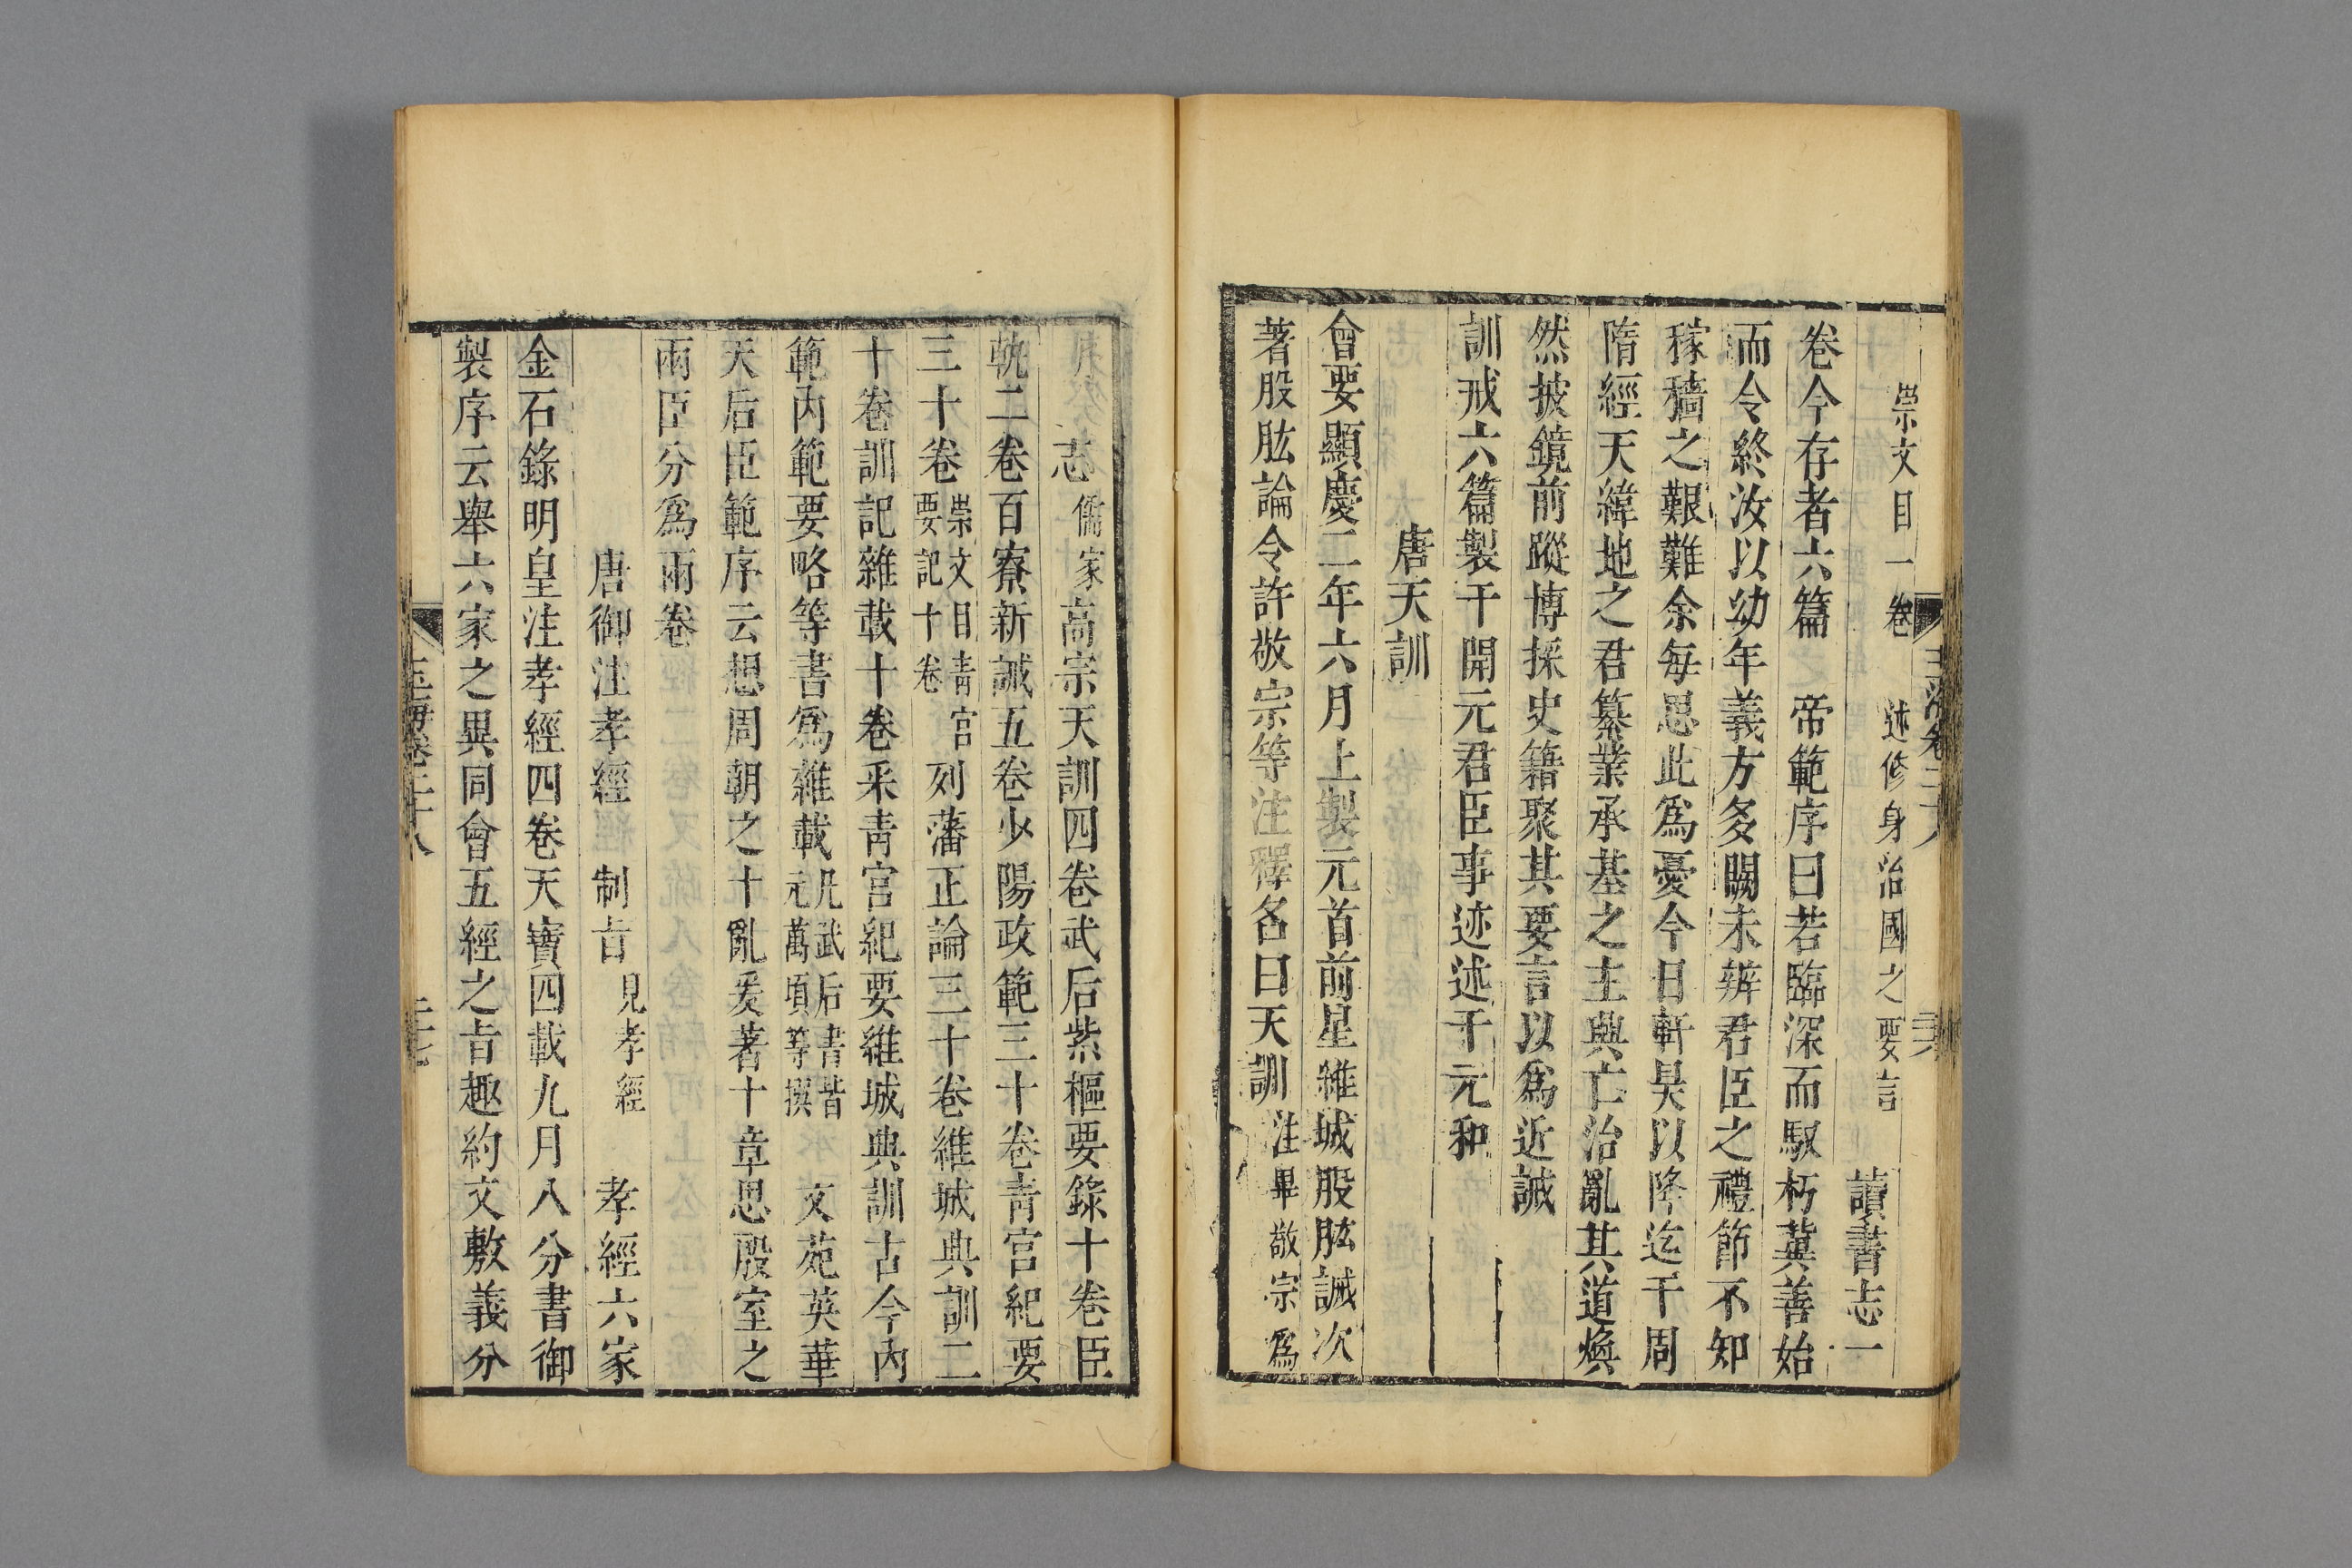 崇文目一卷 述修身治國之要言 讀書志一
卷今存者六篇 帝範序曰若臨深而馭朽冀善始
而令終汝以幼年義方多闕未辨君臣之禮節不知
稼穡之艱難余每思此為憂今日軒昊以降迄于周
隋經天緯地之君纂業承基之主興亡治亂其道煥
然披鏡前蹤博採史籍聚其要言以為近誡
訓戒六篇製于開元君臣事迹述于元和
唐天訓
會要顯慶二年六月上製元首前星維城股肱誡次
著股肱論令許敬宗等注釋名曰天訓 注畢敬宗為
志 儒家高宗天訓四卷武后紫樞要錄十卷臣
軌二卷百寮新誡五卷少陽政範三十卷青宮紀要
三十卷 崇文目青宮要記十卷 列藩正論三十卷維城典訓二
十卷訓記雜載十卷采青宮紀要維城典訓古今內
範內範要略等書為雜載 凡武后書皆元萬頃等撰 文苑英華
天后臣範序云想周朝之十亂爰著十章思殷室之
兩臣分為兩卷
唐御注孝經 制旨 見孝經 孝經六家
金石錄明皇注孝經四卷天寶四載九月八分書御
製序云舉六家之異同會五經之旨趣約文敷義分
玉海卷二十八 二十七